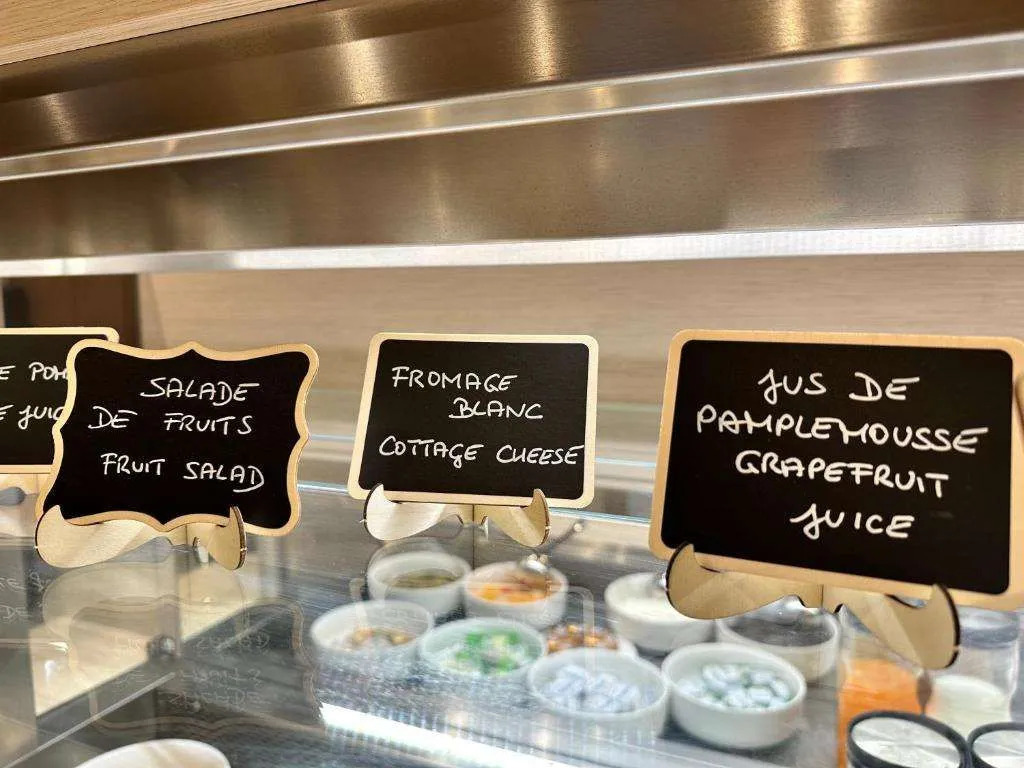 SALADE
DE FRUITS
FRUIT SALAD
FROMAGE
BLANC
COTTAGE CHEESE
JUS DE
PAMPLEMOUSSE
GRAPEFRUIT
JUICE